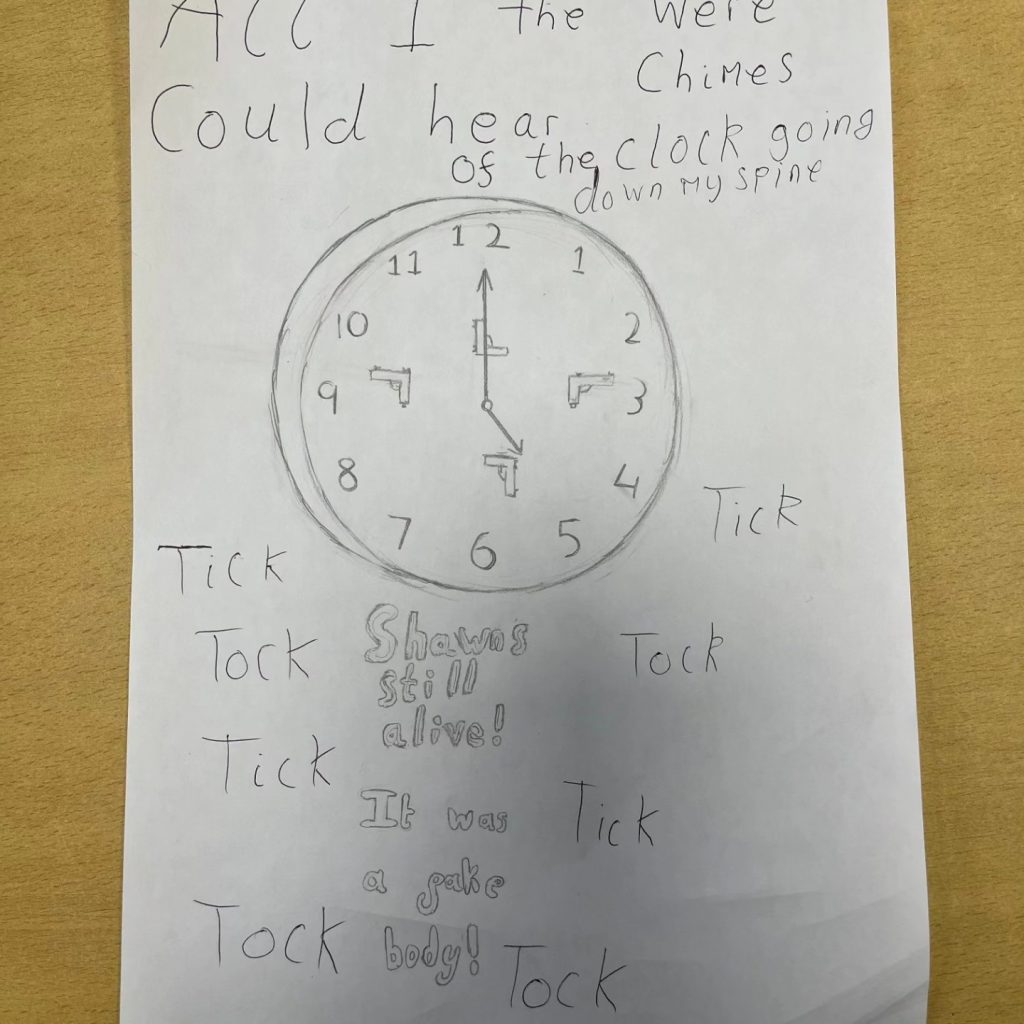 All I the were
Chimes
Could hear
of the clock going
down my spine
12
11 1
10 2
9 3
8 4
7 5
6
Tick
Tick
Tock
Shawn's
still
alive!
Tock
Tick
It was
a fake
body!
Tick
Tock
Tock